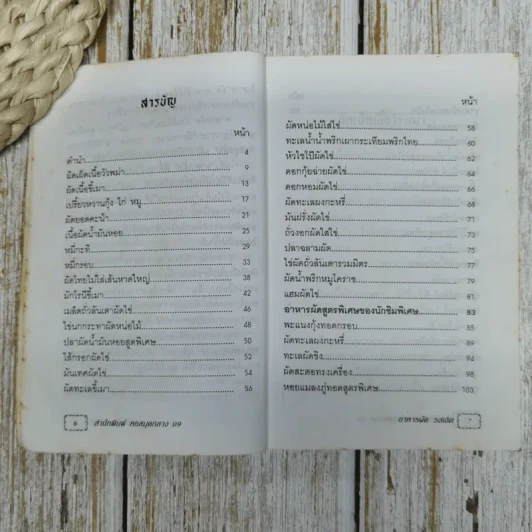 สารบัญ
หน้า
คำนำ 4
ผัดเผ็ดเนื้อวัวพม่า 9
ผัดเนื้อขี้เมา 13
เปรี้ยวหวานกุ้ง ไก่ หมู 17
ผัดยอดคะน้า 21
เนื้อผัดน้ำมันหอย 25
หมี่กะทิ 29
หมี่กรอบ 33
ผัดไทยไม่ใส่เส้นหาดใหญ่ 38
มักโรนีขี้เมา 42
เมล็ดถั่วลันเตาผัดไข่ 46
ไข่นกกระทาผัดหน่อไม้ 48
ปลาผัดน้ำมันหอยสูตรพิเศษ 50
ไส้กรอกผัดไข่ 52
มันเทศผัดไข่ 54
ผัดทะเลขี้เมา 56
6 สำนักพิมพ์ หอสมุดกลาง 09
หน้า
ผัดหน่อไม้ใส่ไข่ 58
ทะเลน้ำน้ำพริกเผากระเทียมพริกไทย 60
หัวไชโป๊ผัดไข่ 62
ดอกกุ้ยฉ่ายผัดไข่ 64
ดอกหอมผัดไข่ 66
ผัดทะเลผงกะหรี่ 68
มันฝรั่งผัดไข่ 71
ถั่วงอกผัดใส่ไข่ 73
ปลาฉลามผัด 75
ไข่ผัดถั่วลันเตารวมมิตร 77
ผัดน้ำพริกหมูโคราช 79
แฮมผัดไข่ 81
อาหารผัดสูตรพิเศษของนักชิมพิเศษ 83
พะแนงกุ้งทอดกรอบ 85
ผัดทะเลผงกะหรี่ 89
ทะเลผัดขิง 94
ผัดสะตอทรงเครื่อง 98
หอยแมลงภู่ทอดสูตรพิเศษ 103
อาหารผัด รสเลิศ 7